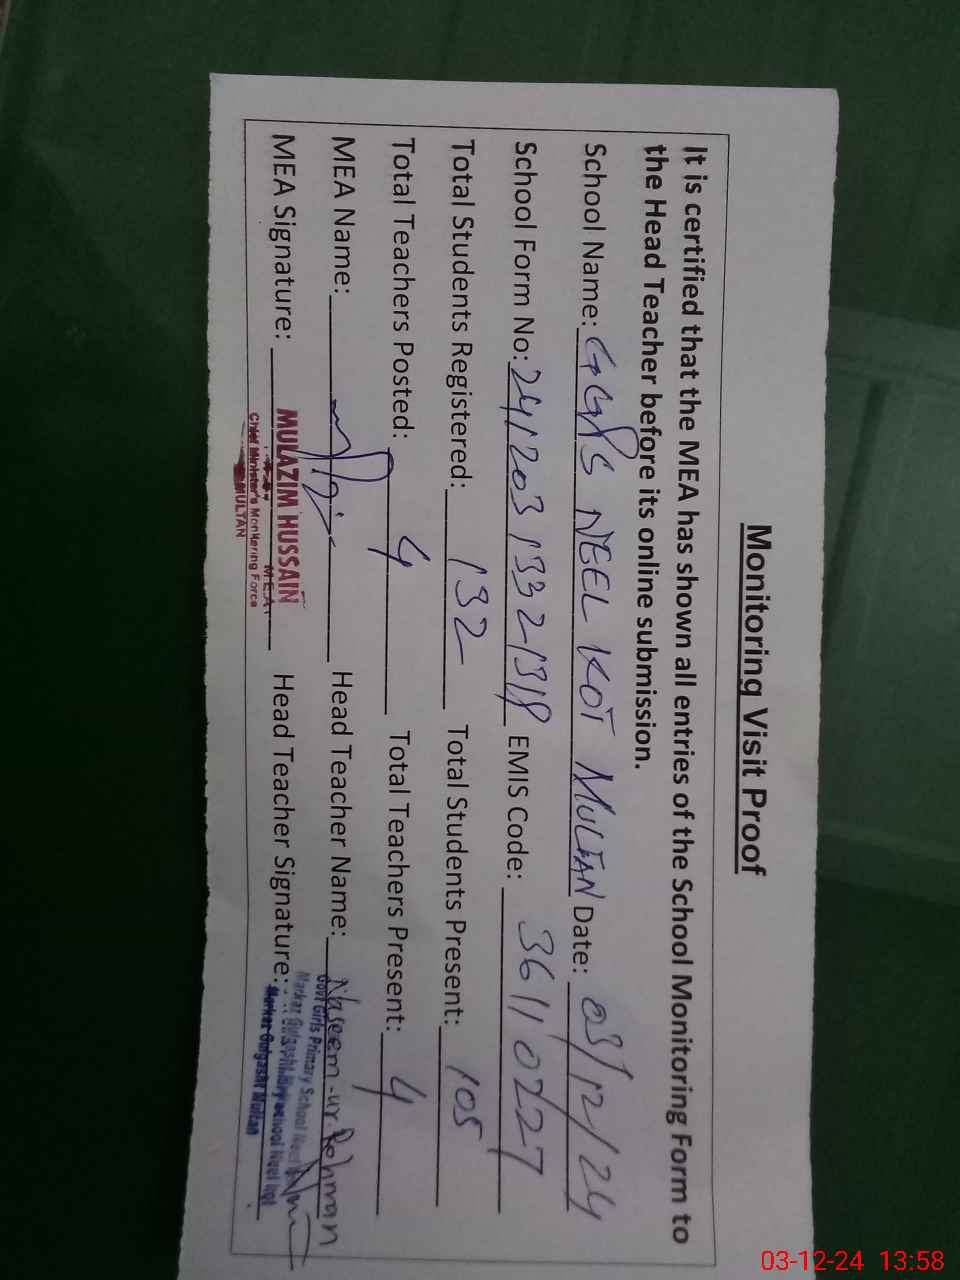 Monitoring Visit Proof
It is certified that the MEA has shown all entries of the School Monitoring Form to
the Head Teacher before its online submission.
School Name: GGPS NEEL KOT MULTAN Date: 03/12/24
School Form No: 241203 1332 1318 EMIS Code: 36110227
Total Students Registered: 132 Total Students Present: 105
Total Teachers Posted: 4 Total Teachers Present: 4
MEA Name: Head Teacher Name: Naseem-ur-Rehman
MEA Signature: Head Teacher Signature:
MULAZIM HUSSAIN
M.E.A
Chief Minister's Monitoring Force
MULTAN
Govt Girls Primary School Neel
Markaz Gulgasht
Markaz Gulgasht Multan
03-12-24 13:58